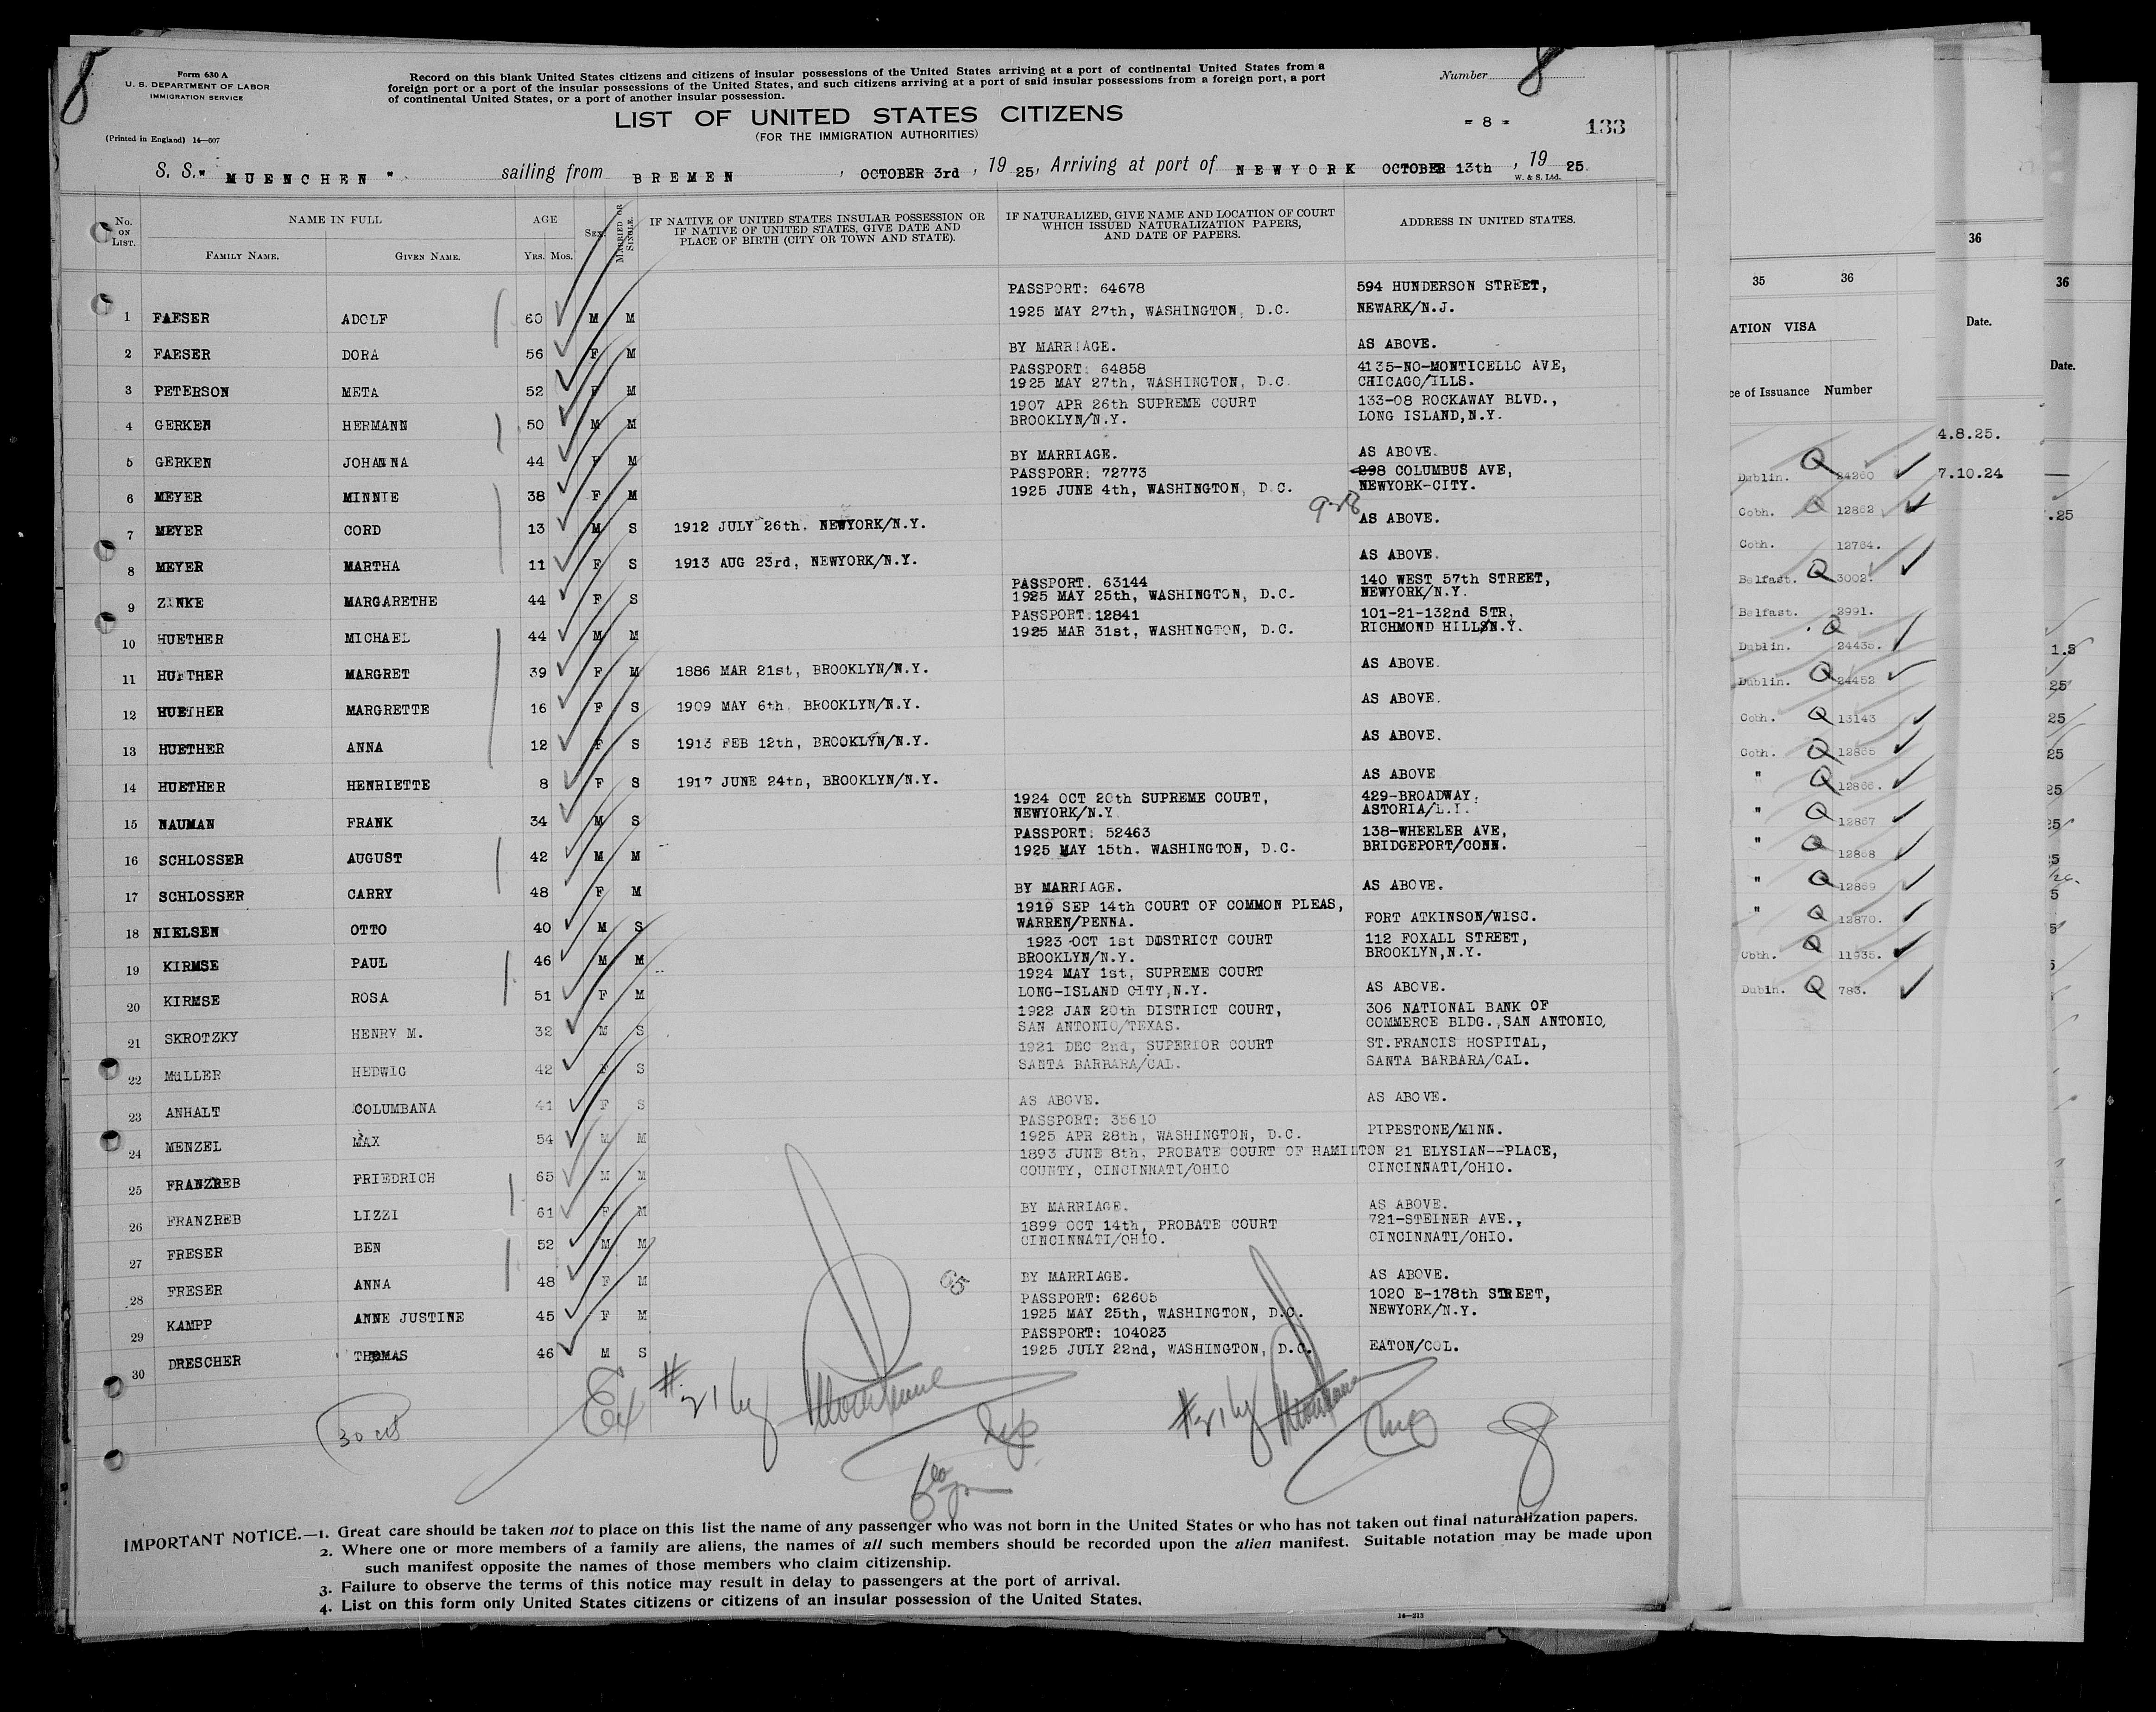 8
8
Form 630 A
U. S. DEPARTMENT OF LABOR
IMMIGRATION SERVICE
(Printed in England) 14—607
Record on this blank United States citizens and citizens of insular possessions of the United States arriving at a port of continental United States from a
foreign port or a port of the insular possessions of the United States, and such citizens arriving at a port of said insular possessions from a foreign port, a port
of continental United States, or a port of another insular possession.
Number
LIST OF UNITED STATES CITIZENS
(FOR THE IMMIGRATION AUTHORITIES)
= 8 =
133
S. S. " MUENCHEN " sailing from BREMEN , OCTOBER 3rd , 19 25, Arriving at port of NEWYORK OCTOBER 13th , 19 25.
W. & S. Ltd.
No. ON LIST.
NAME IN FULL
FAMILY NAME. GIVEN NAME.
AGE
YRS. MOS.
SEX
MARRIED OR SINGLE.
IF NATIVE OF UNITED STATES INSULAR POSSESSION OR
IF NATIVE OF UNITED STATES, GIVE DATE AND
PLACE OF BIRTH (CITY OR TOWN AND STATE).
IF NATURALIZED, GIVE NAME AND LOCATION OF COURT
WHICH ISSUED NATURALIZATION PAPERS,
AND DATE OF PAPERS.
ADDRESS IN UNITED STATES.
PASSPORT: 64678 594 HUNDERSON STREET,
1 FAESER ADOLF 60 M M 1925 MAY 27th, WASHINGTON, D.C. NEWARK/N.J.
2 FAESER DORA 56 F M BY MARRIAGE. AS ABOVE.
PASSPORT: 64858 4135-NO-MONTICELLO AVE,
3 PETERSON META 52 F M 1925 MAY 27th, WASHINGTON, D.C. CHICAGO/ILLS.
1907 APR 26th SUPREME COURT 133-08 ROCKAWAY BLVD.,
4 GERKEN HERMANN 50 M M BROOKLYN/N.Y. LONG ISLAND,N.Y.
5 GERKEN JOHANNA 44 F M BY MARRIAGE. AS ABOVE.
PASSPORR: 72773 298 COLUMBUS AVE,
6 MEYER MINNIE 38 F M 1925 JUNE 4th, WASHINGTON, D.C. NEWYORK-CITY.
7 MEYER CORD 13 M S 1912 JULY 26th. NEWYORK/N.Y. AS ABOVE.
8 MEYER MARTHA 11 F S 1913 AUG 23rd, NEWYORK/N.Y. AS ABOVE.
PASSPORT. 63144 140 WEST 57th STREET,
9 ZINKE MARGARETHE 44 F S 1925 MAY 25th, WASHINGTON, D.C. NEWYORK/N.Y.
PASSPORT:12841 101-21-132nd STR,
10 HUETHER MICHAEL 44 M M 1925 MAR 31st, WASHINGTON, D.C. RICHMOND HILL N.Y.
11 HUETHER MARGRET 39 F M 1886 MAR 21st, BROOKLYN/N.Y. AS ABOVE.
12 HUETHER MARGRETTE 16 F S 1909 MAY 6th. BROOKLYN/N.Y. AS ABOVE.
13 HUETHER ANNA 12 F S 1913 FEB 12th, BROOKLYN/N.Y. AS ABOVE.
14 HUETHER HENRIETTE 8 F S 1917 JUNE 24th, BROOKLYN/N.Y. AS ABOVE
1924 OCT 20th SUPREME COURT, 429-BROADWAY,
15 NAUMAN FRANK 34 M S NEWYORK/N.Y ASTORIA/L.I.
PASSPORT: 52463 138-WHEELER AVE,
16 SCHLOSSER AUGUST 42 M M 1925 MAY 15th. WASHINGTON, D.C. BRIDGEPORT/CONN.
17 SCHLOSSER CARRY 48 F M BY MARRIAGE. AS ABOVE.
1919 SEP 14th COURT OF COMMON PLEAS,
18 NIELSEN OTTO 40 M S WARREN/PENNA. FORT ATKINSON/WISC.
1923 OCT 1st DISTRICT COURT 112 FOXALL STREET,
19 KIRMSE PAUL 46 M M BROOKLYN/N.Y. BROOKLYN,N.Y.
1924 MAY 1st, SUPREME COURT
20 KIRMSE ROSA 51 F M LONG-ISLAND CITY,N.Y. AS ABOVE.
1922 JAN 20th DISTRICT COURT, 306 NATIONAL BANK OF
21 SKROTZKY HENRY M. 32 M S SAN ANTONIO/TEXAS. COMMERCE BLDG.,SAN ANTONIO,
1921 DEC 2nd, SUPERIOR COURT ST.FRANCIS HOSPITAL,
22 MüLLER HEDWIG 42 F S SANTA BARBARA/CAL. SANTA BARBARA/CAL.
23 ANHALT COLUMBANA 41 F S AS ABOVE. AS ABOVE.
PASSPORT: 35610
24 MENZEL MAX 54 M M 1925 APR 28th, WASHINGTON, D.C. PIPESTONE/MINN.
1893 JUNE 8th, PROBATE COURT OF HAMILTON 21 ELYSIAN--PLACE,
25 FRANZREB FRIEDRICH 65 M M COUNTY, CINCINNATI/OHIO CINCINNATI/OHIO.
26 FRANZREB LIZZI 61 F M BY MARRIAGE. AS ABOVE.
1899 OCT 14th, PROBATE COURT 721-STEINER AVE.,
27 FRESER BEN 52 M M CINCINNATI/OHIO. CINCINNATI/OHIO.
28 FRESER ANNA 48 F M BY MARRIAGE. AS ABOVE.
PASSPORT: 62605 1020 E-178th STREET,
29 KAMPP ANNE JUSTINE 45 F M 1925 MAY 25th, WASHINGTON, D.C. NEWYORK/N.Y.
PASSPORT: 104023
30 DRESCHER THOMAS 46 M S 1925 JULY 22nd, WASHINGTON, D.C. EATON/COL.
65
8
IMPORTANT NOTICE.—1. Great care should be taken not to place on this list the name of any passenger who was not born in the United States or who has not taken out final naturalization papers.
2. Where one or more members of a family are aliens, the names of all such members should be recorded upon the alien manifest. Suitable notation may be made upon
such manifest opposite the names of those members who claim citizenship.
3. Failure to observe the terms of this notice may result in delay to passengers at the port of arrival.
4. List on this form only United States citizens or citizens of an insular possession of the United States.
14—213
35 36
ATION VISA
ce of Issuance Number
Dublin. Q 24260
Cobh. Q 12862
Cobh. 12764.
Belfast. Q 3002.
Belfast. 2991.
Dublin. Q 24435.
Dublin. Q 24452
Cobh. Q 13143
Cobh. Q 12865
" Q 12866.
" Q 12867
" Q 12868
" Q 12869
" Q 12870.
Cobh. Q 11935.
Dubin. Q 783.
36
Date.
4.8.25.
7.10.24
36
Date.
.25
25
25
25
25